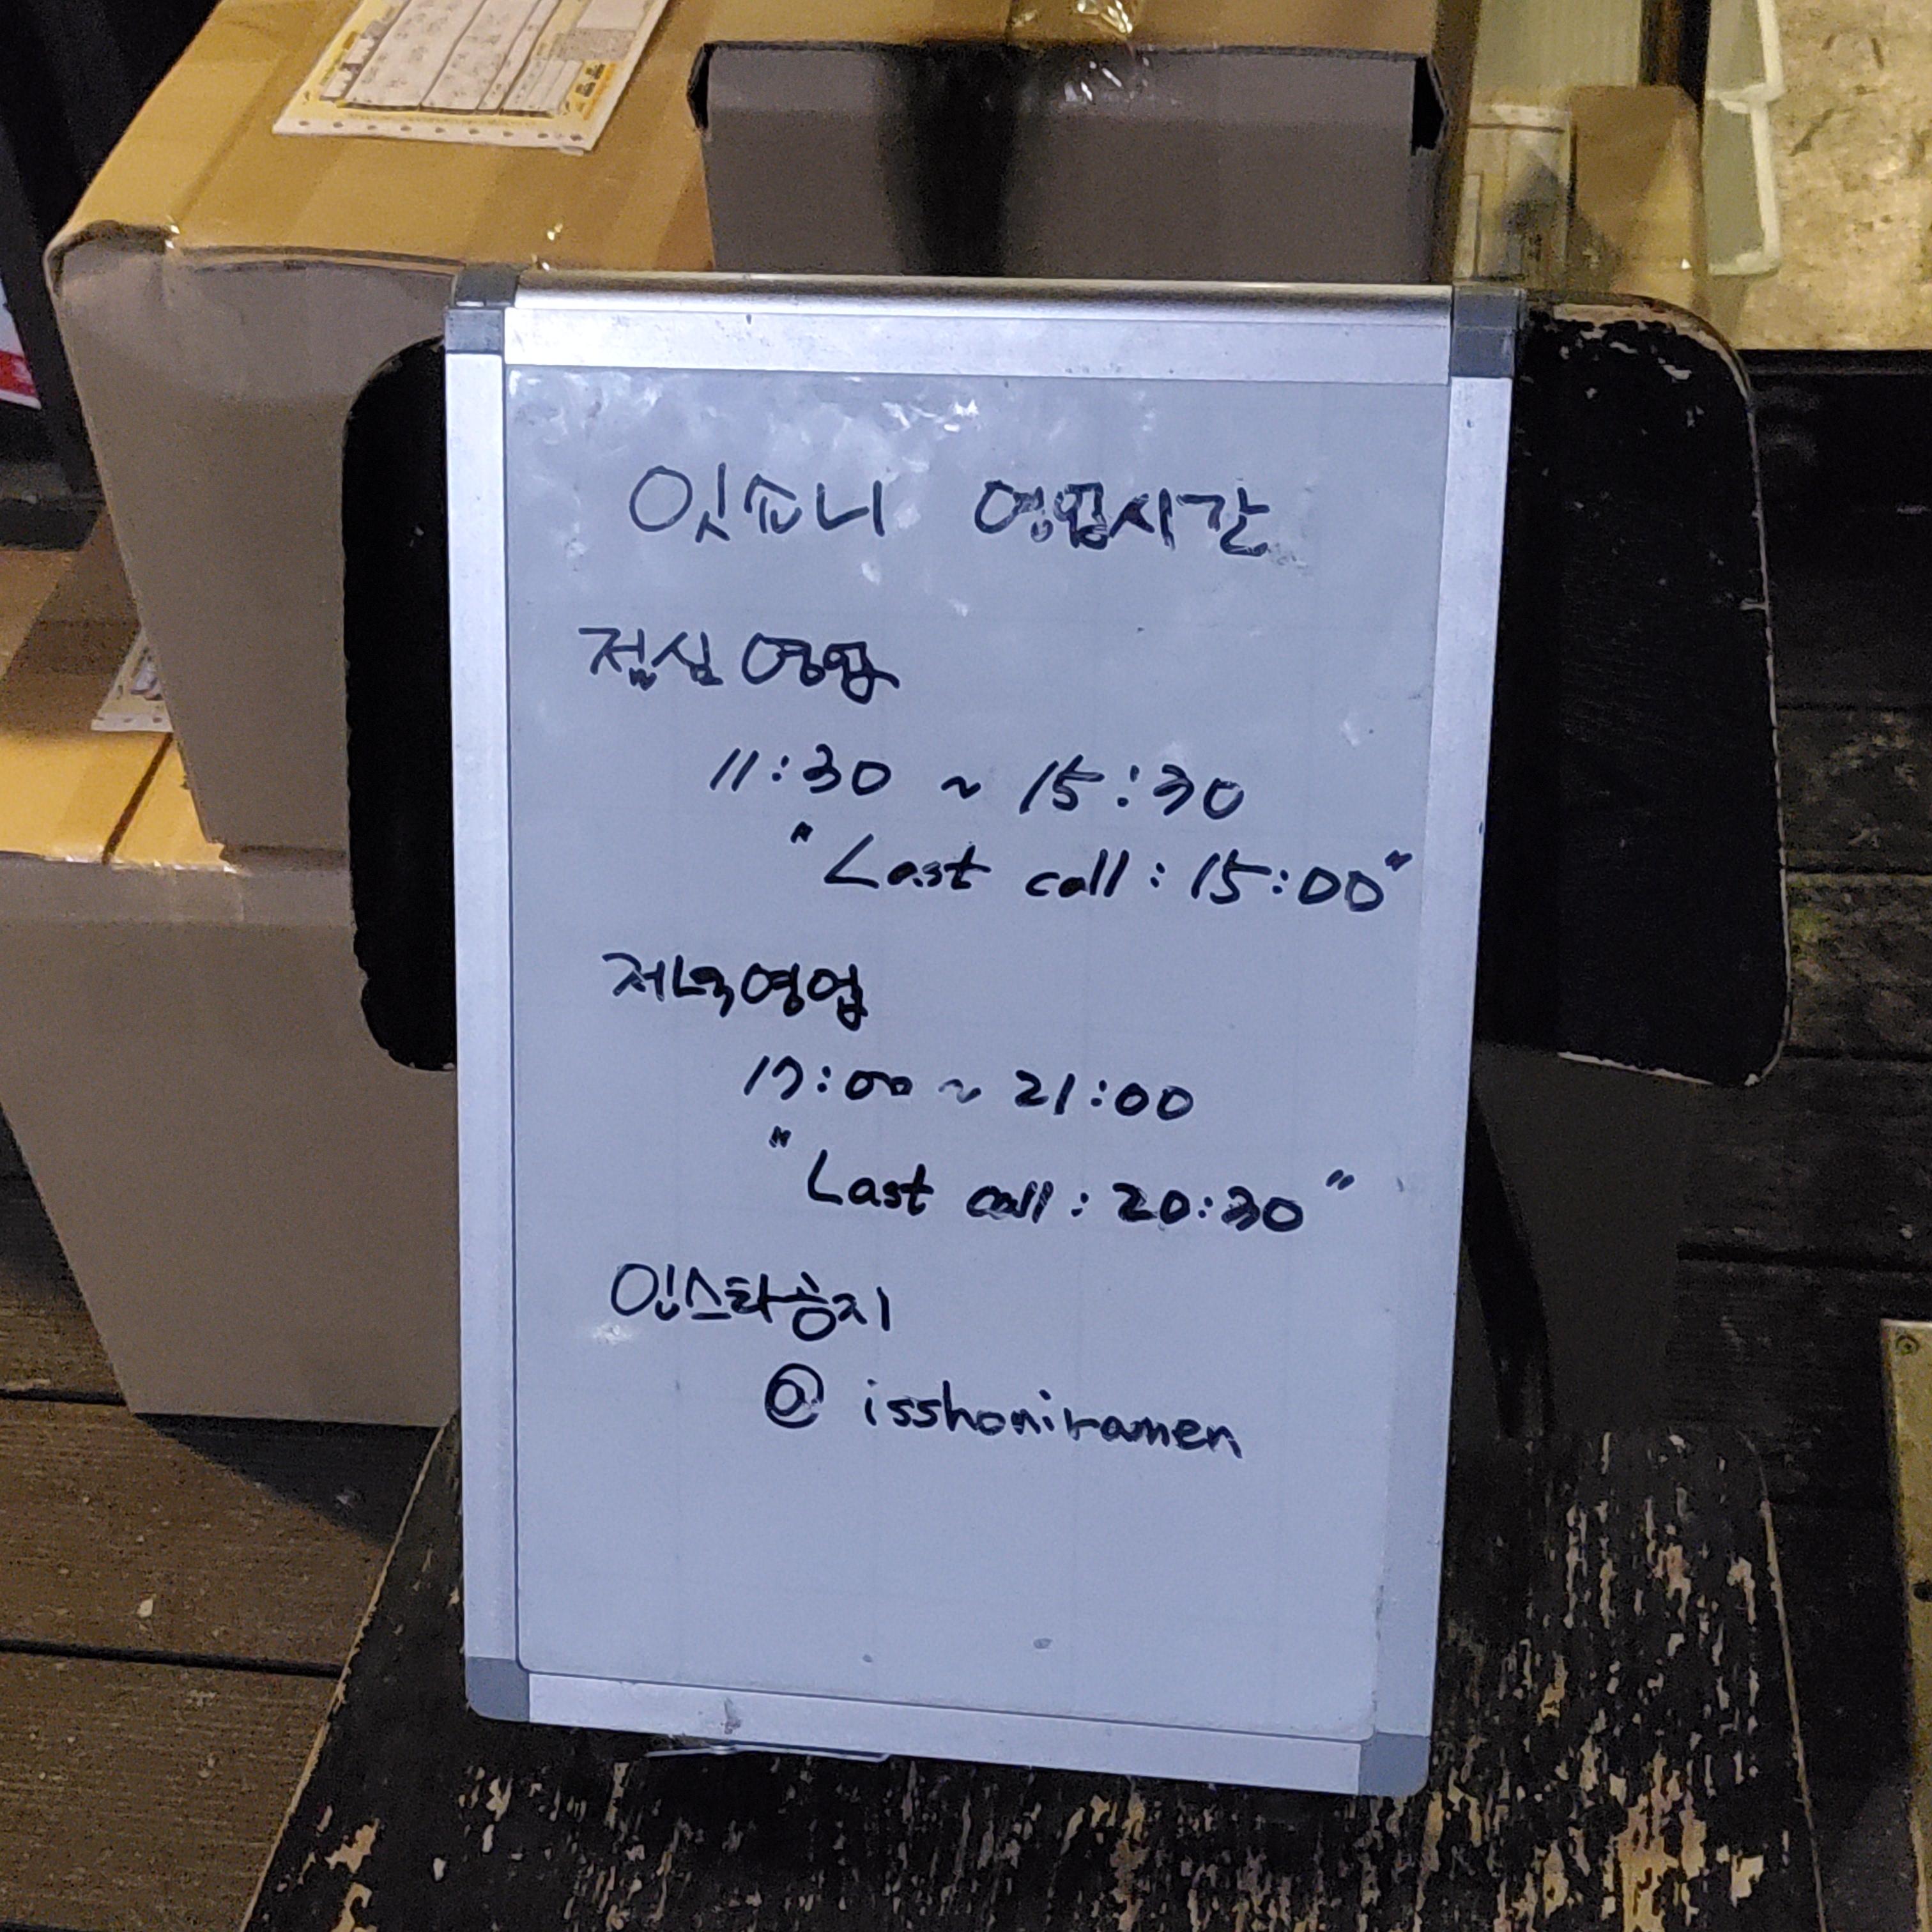 잇쇼니 영업시간
점심영업
11:30 ~ 15:30
"Last call : 15:00"
저녁영업
17:00 ~ 21:00
"Last call : 20:30"
인스타공지
@ isshoniramen